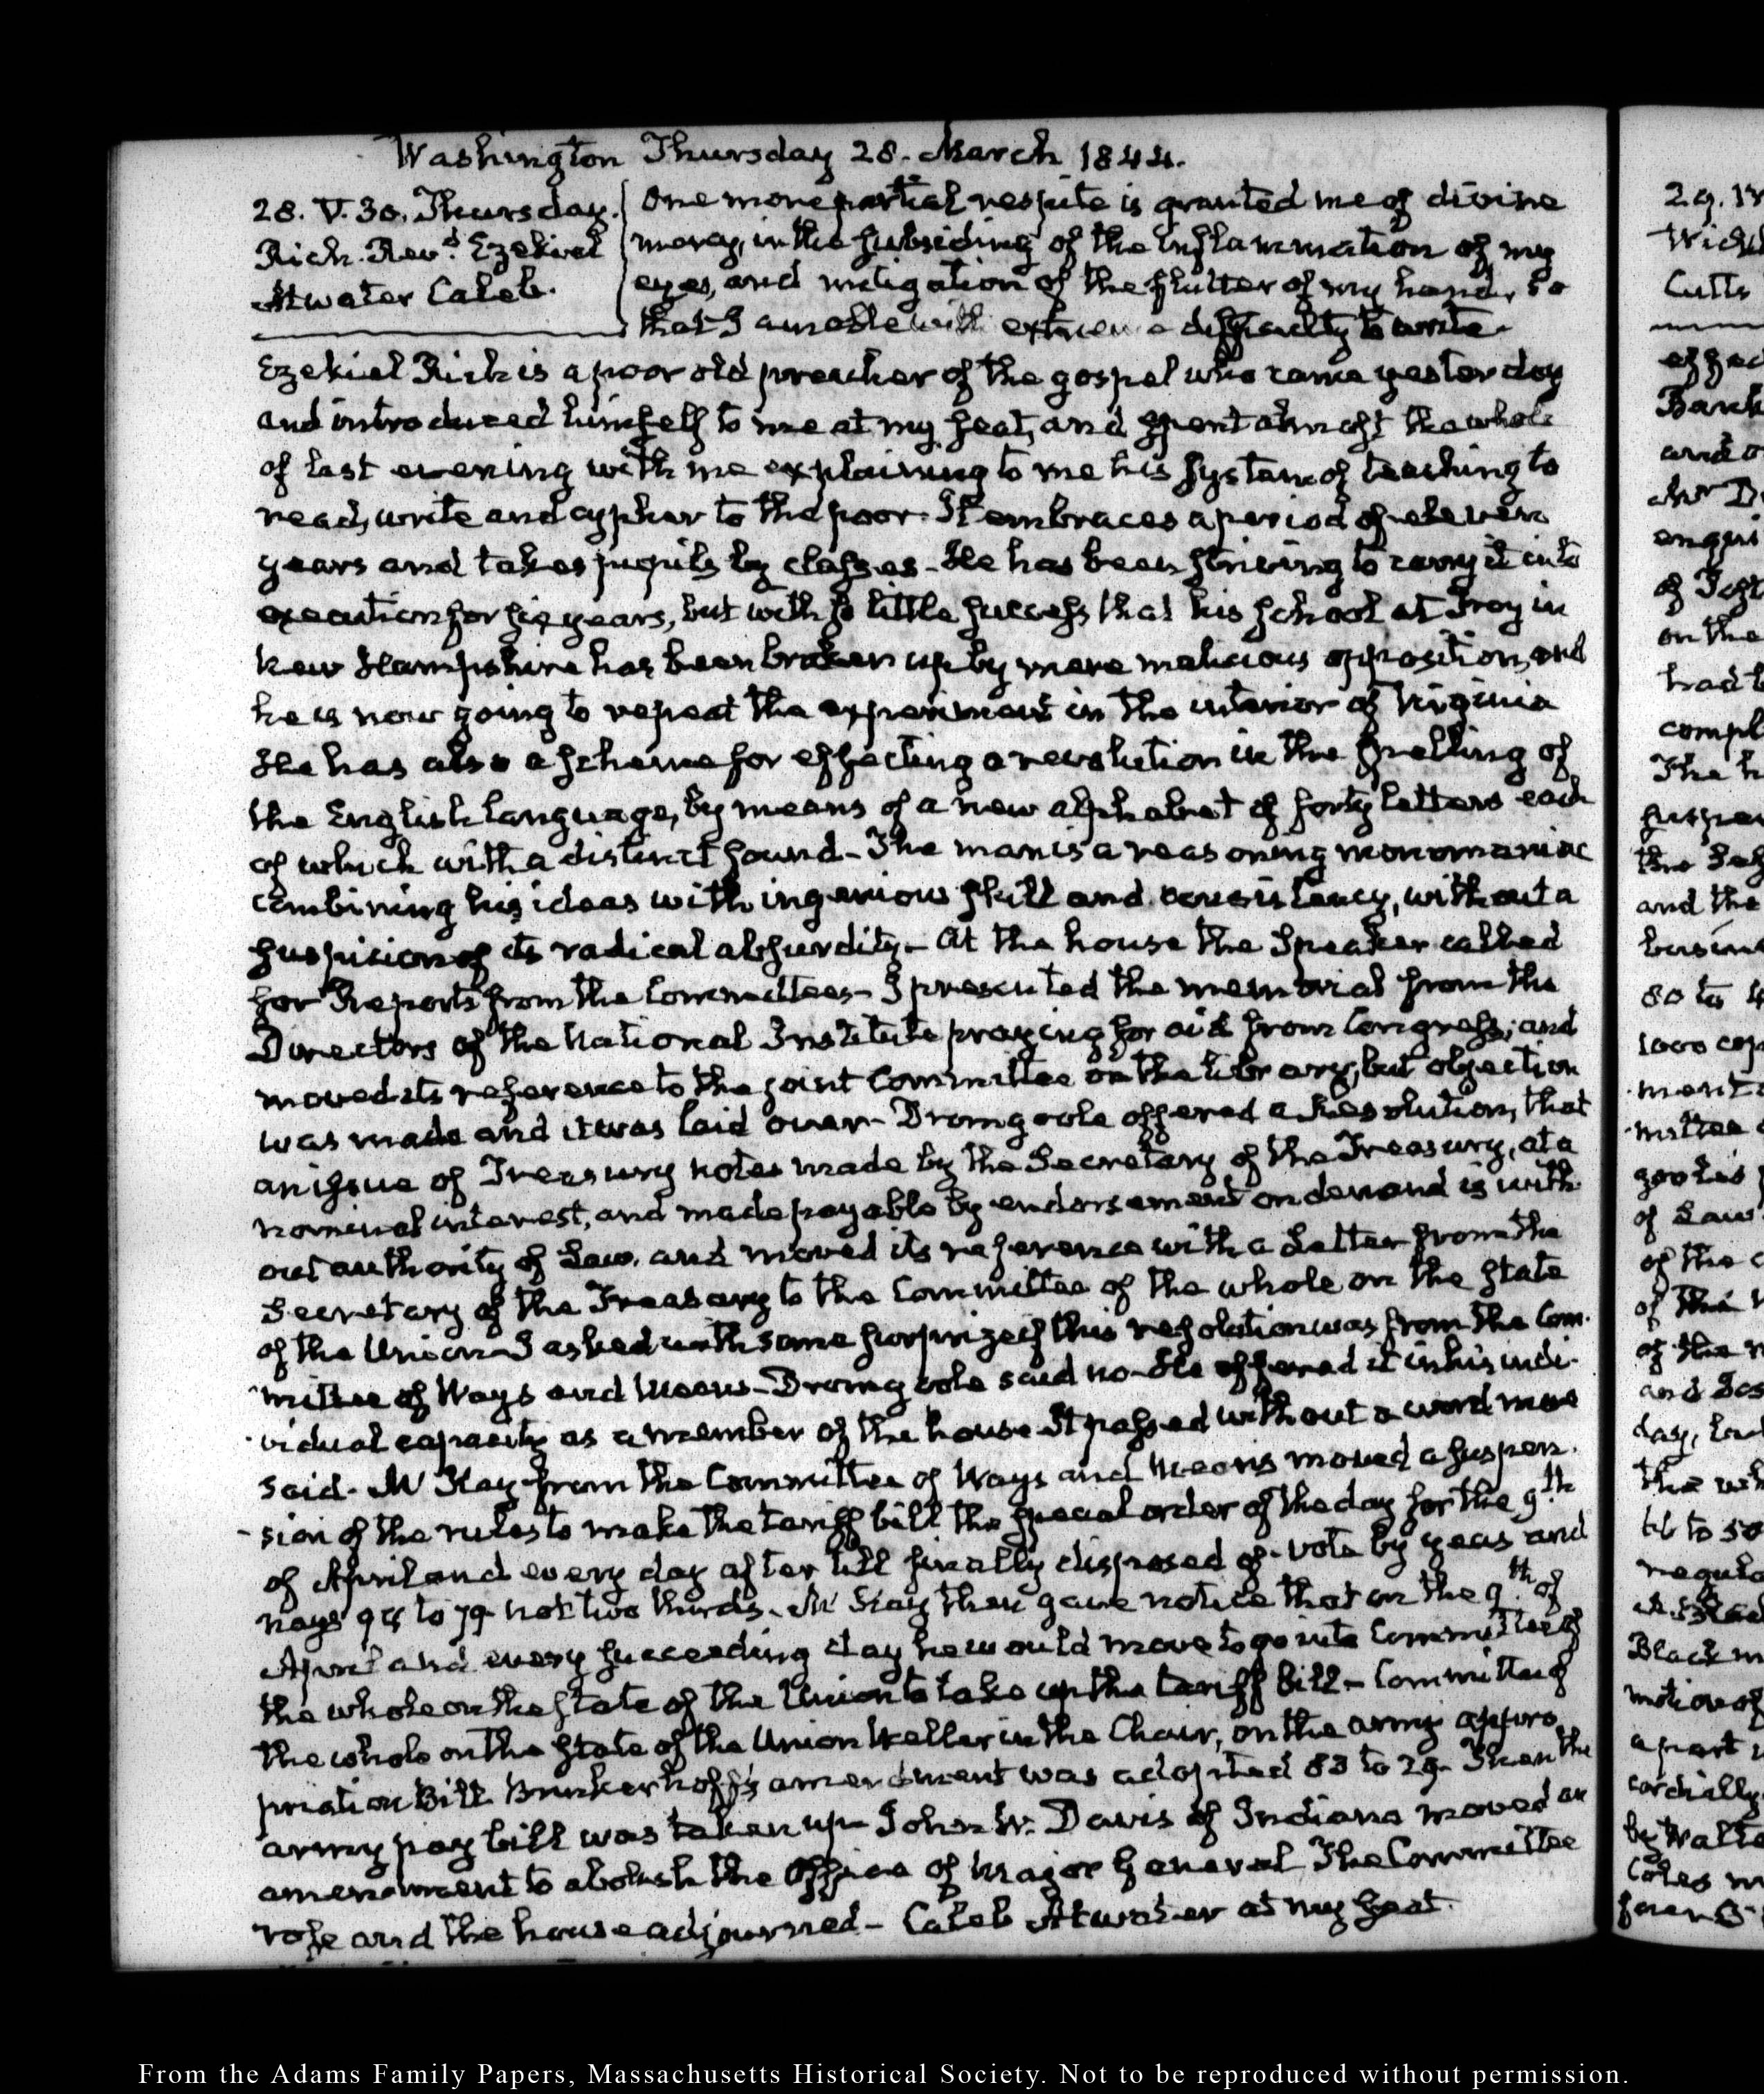 Washington Thursday 28. March 1844.
28. V.30. Thursday.
Rich. Revd. Ezekiel
Atwater Caleb.
One more partial respite is granted me of divine
mercy, in the subsiding of the inflammation of my
eyes, and mitigation of the flutter of my hand, so
that I am able with extreme difficulty to write.
Ezekiel Rich is a poor old preacher of the gospel who came yesterday
and introduced himself to me at my seat, and spent almost the whole
of last evening with me explaining to me his system of teaching to
read, write and cypher to the poor. It embraces a period of eleven
years and takes pupils by classes. He has been striving to carry it into
execution for six years, but with so little success that his school at Troy in
New Hampshire has been broken up by mere malicious opposition, and
he is now going to repeat the experiment in the interior of Virginia
He has also a scheme for effecting a revolution in the spelling of
the English language, by means of a new alphabet of forty letters each
of which with a distinct sound - The man is a reasoning monomaniac
combining his ideas with ingenious skill and consistency, without a
suspicion of its radical absurdity - At the house the Speaker called
for Reports from the Committees - I presented the memorial from the
Directors of the National Institute praying for aid from Congress; and
moved its reference to the joint Committee on the library, but objection
was made and it was laid over - Dromgoole offered a Resolution, that
an issue of Treasury notes made by the Secretary of the Treasury, at a
nominal interest, and made payable by endorsement on demand is with
out authority of Law. and moved its reference with a Letter from the
Secretary of the Treasury to the Committee of the whole on the state
of the Union - I asked with some surprize if this resolution was from the Com-
mittee of Ways and Means - Dromgoole said no - He offered it in his indi-
vidual capacity as a member of the house It passed without a word more
said. McKay from the Committee of Ways and Means moved a suspen-
sion of the rules to make the tariff bill the special order of the day for the 9th
of April and every day after till finally disposed of - vote by yeas and
nays 94 to 79 - not two thirds. McKay then gave notice that on the 9th of
April and every succeeding day he would move to go into Committee of
the whole on the state of the Union to take up the tariff bill - Committee of
the whole on the state of the Union Weller in the Chair, on the army appro
priation Bill. Brinkerhoff's amendment was adopted 83 to 29. Then the
army pay bill was taken up - John W. Davis of Indiana moved an
amendment to abolish the Office of Major General The Committee
rose and the house adjourned - Caleb Atwater at my seat.
From the Adams Family Papers, Massachusetts Historical Society. Not to be reproduced without permission.